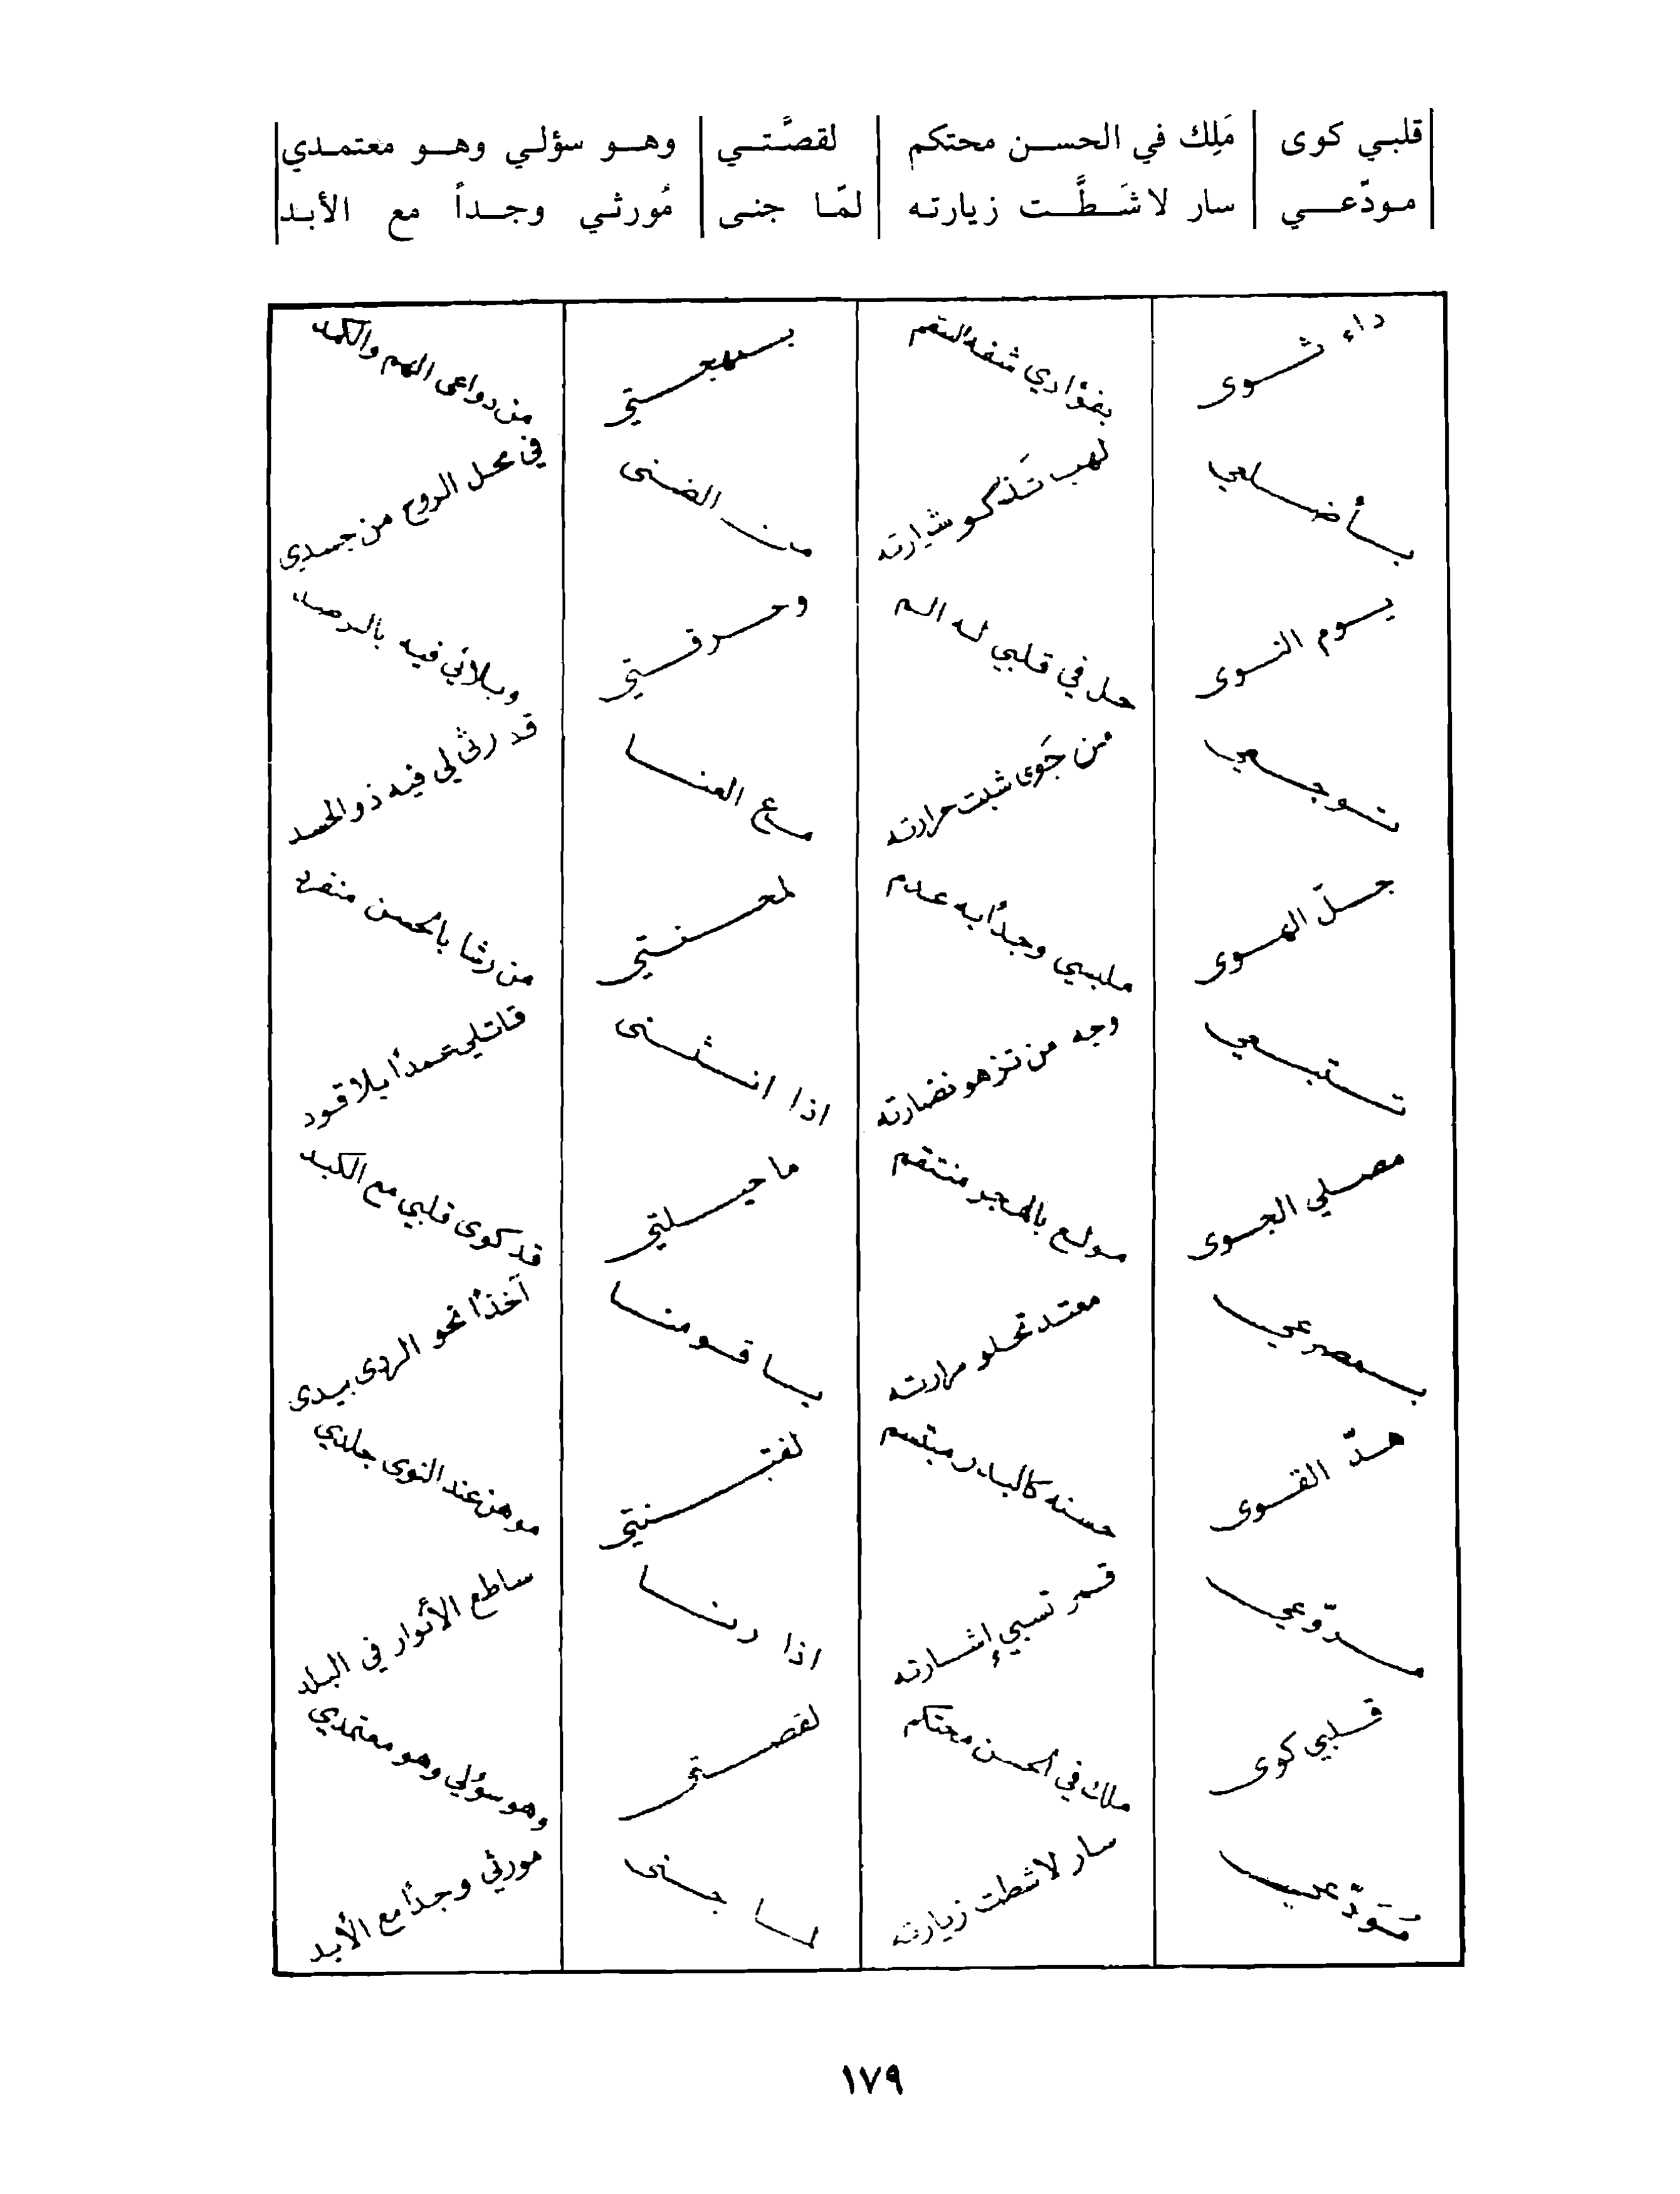 قلبي كوى | مَلِك في الحسن محتكم | لقصَّتي | وهو سؤلي وهو معتمدي
مودّعي | سار لا شَطَّت زيارته | لمّا جنى | مُورثي وجداً مع الأبد
داء ثوى | بفؤادي شفه السقم | بمهجتي | من دواعى الهم والكمد
بأضلعي | لهب تَذكو شرارته | من الضنى | في محل الروح من جسدي
يوم النوى | حل في قلبي له الم | وحرقتي | وبلائي فيه بالرصد
توجعي | من جَوى شبت حرارته | مع العنا | قد رثى لي فيه ذو الحسد
جلّ الهوى | ملبسي وجداً به عدم | لمحنتي | من رشا بالحسن منفرد
تتبعي | وجه من تزهو نضارته | اذا انثنى | قاتلي عمداً بلا قود
مصلي الجوى | مولع بالهجر منتقم | ما حيلتي | قد كوى قلبي مع الكبد
بمصرعي | معتد تحلو مرارته | يا قومنا | آخذاً نحو الردى بيدى
هدّ القوى | حسنه كالبدر مبتسم | لفتنتي | موهن عند النوى جلدي
مروّعي | قمر تسبي إشارته | اذا رنا | ساطع الأنوار في البلد
قلبي كوى | ملك في الحسن محتكم | لقصتي | وهو سؤلي وهو معتمدي
مَوَدّعي | سار لا شطت زيارته | لما جنى | مورثي وجداً مع الأبد
١٧٩